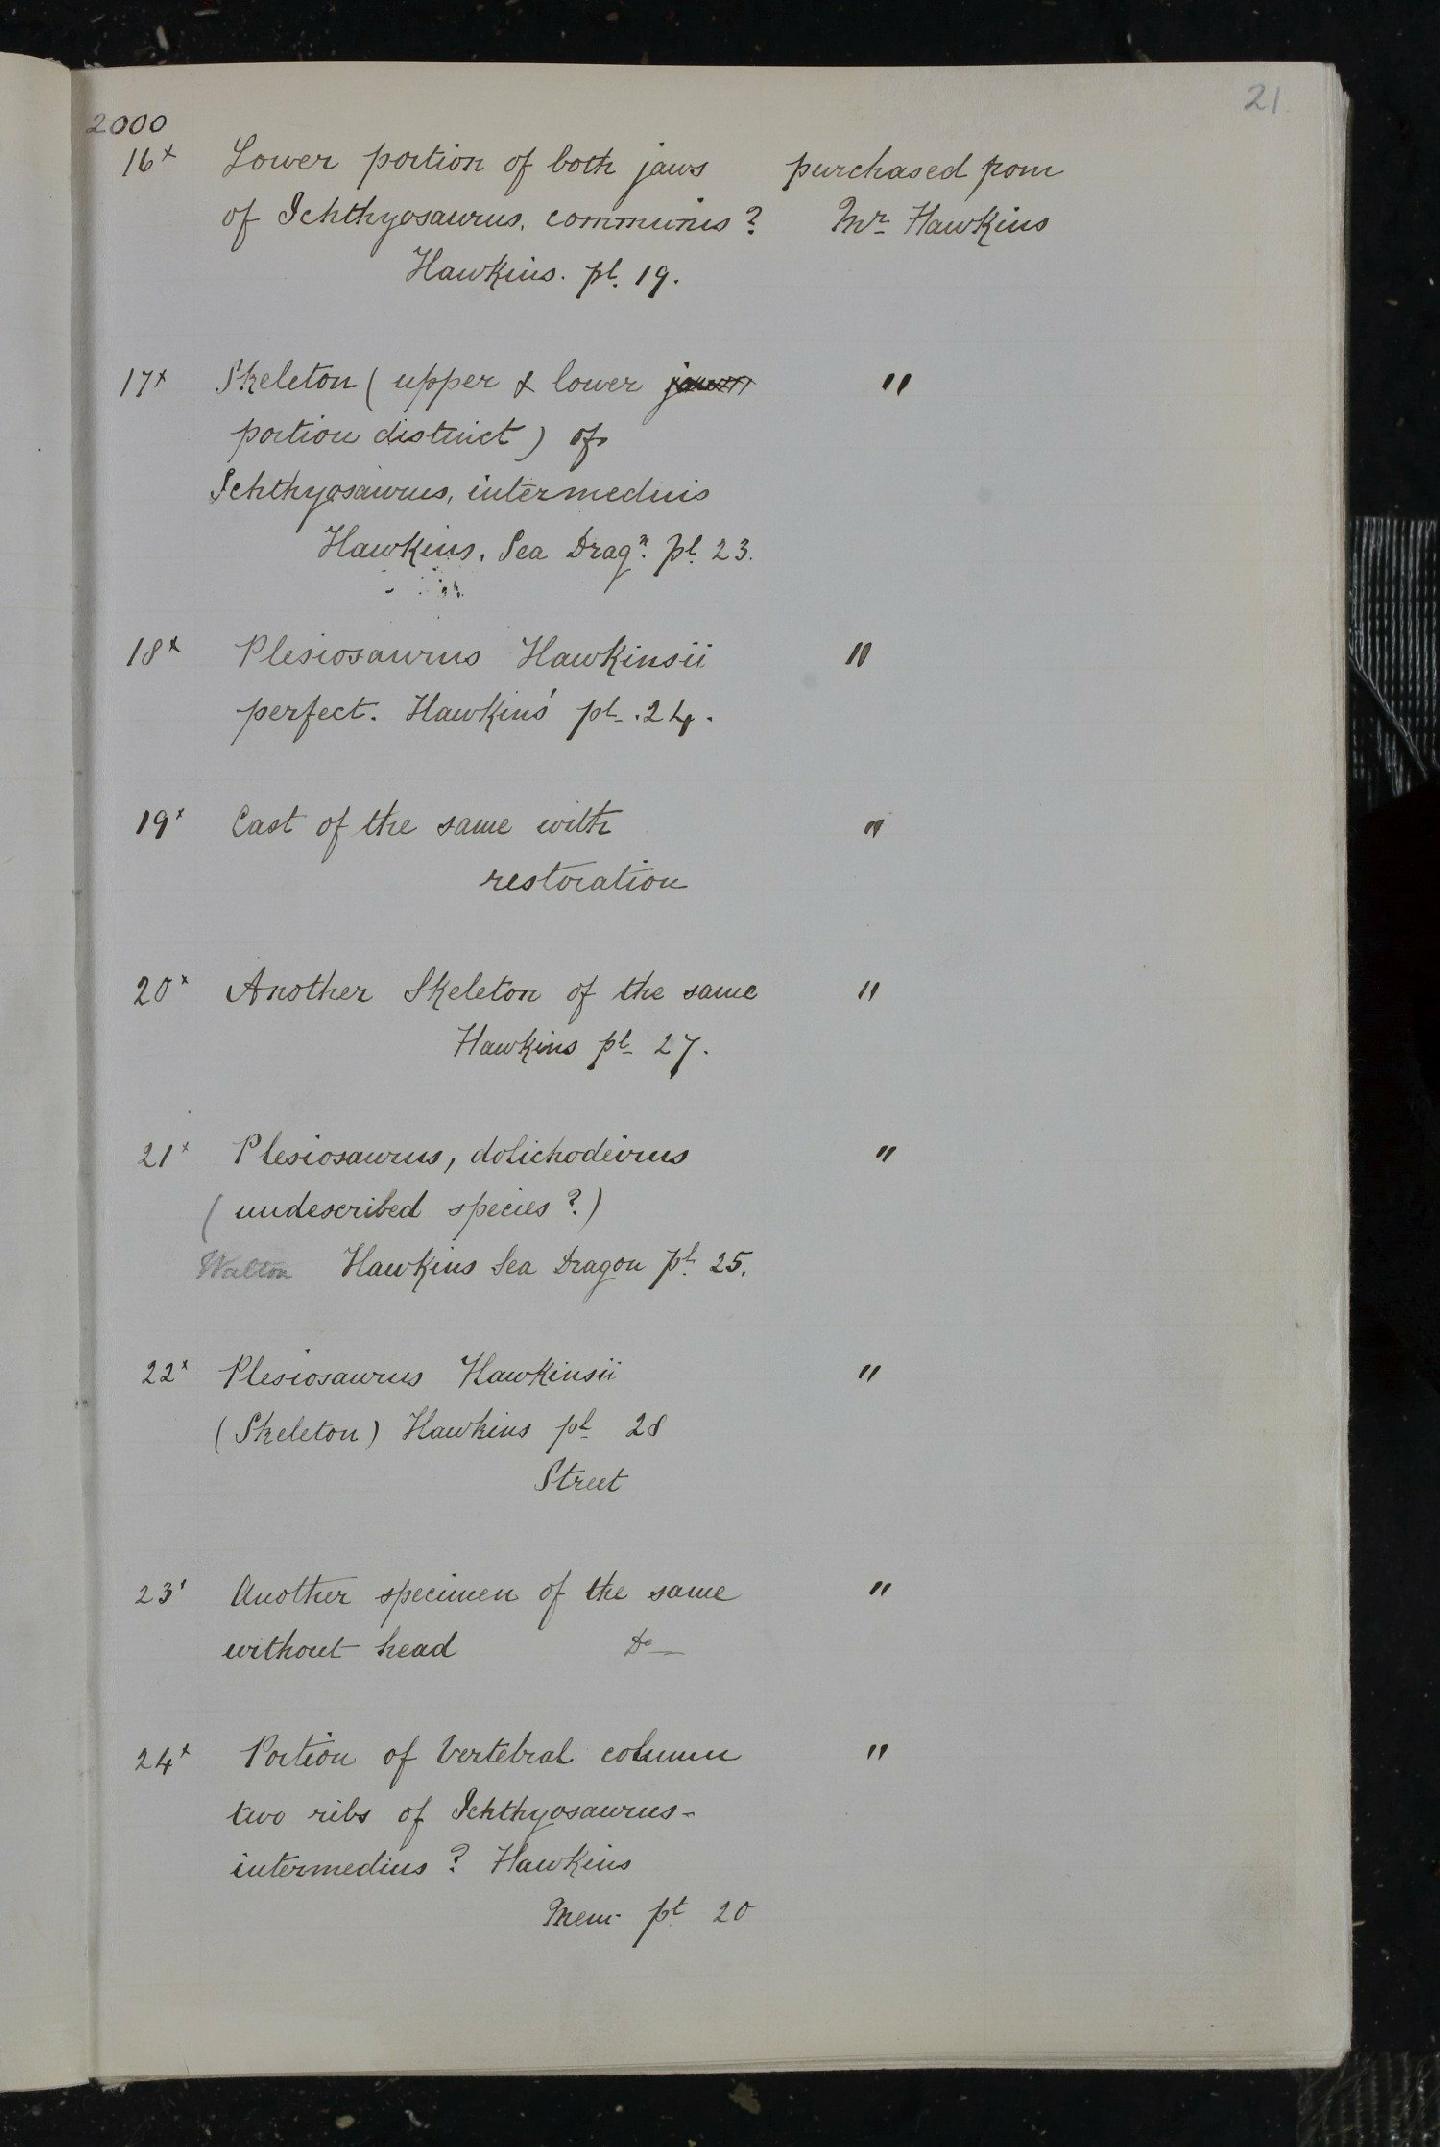 21.
2000
16x Lower portion of both jaws purchased from
of Ichthyosaurus, communis? Mr. Hawkins
Hawkins. pl. 19.
17x Skeleton (upper & lower "
portion distinct) of
Ichthyosaurus, intermedius
Hawkins. Sea Dragn. pl. 23.
18x Plesiosaurus Hawkinsii "
perfect. Hawkins' pl. 24.
19x Cast of the same with "
restoration
20x Another Skeleton of the same "
Hawkins pl. 27.
21x Plesiosaurus, dolichodeirus "
(undescribed species?)
Walton Hawkins Sea Dragon pl. 25.
22x Plesiosaurus Hawkinsii "
(Skeleton) Hawkins pl 28
Street
23' Another specimen of the same "
without head Do —
24x Portion of Vertebral column "
two ribs of Ichthyosaurus-
intermedius? Hawkins
Mem. pt 20